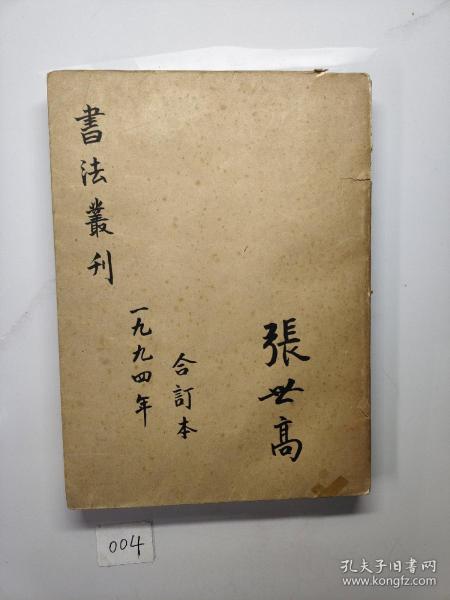 書法叢刊
一九九四年
合訂本
張世高
004
孔夫子旧书网
www.kongfz.com